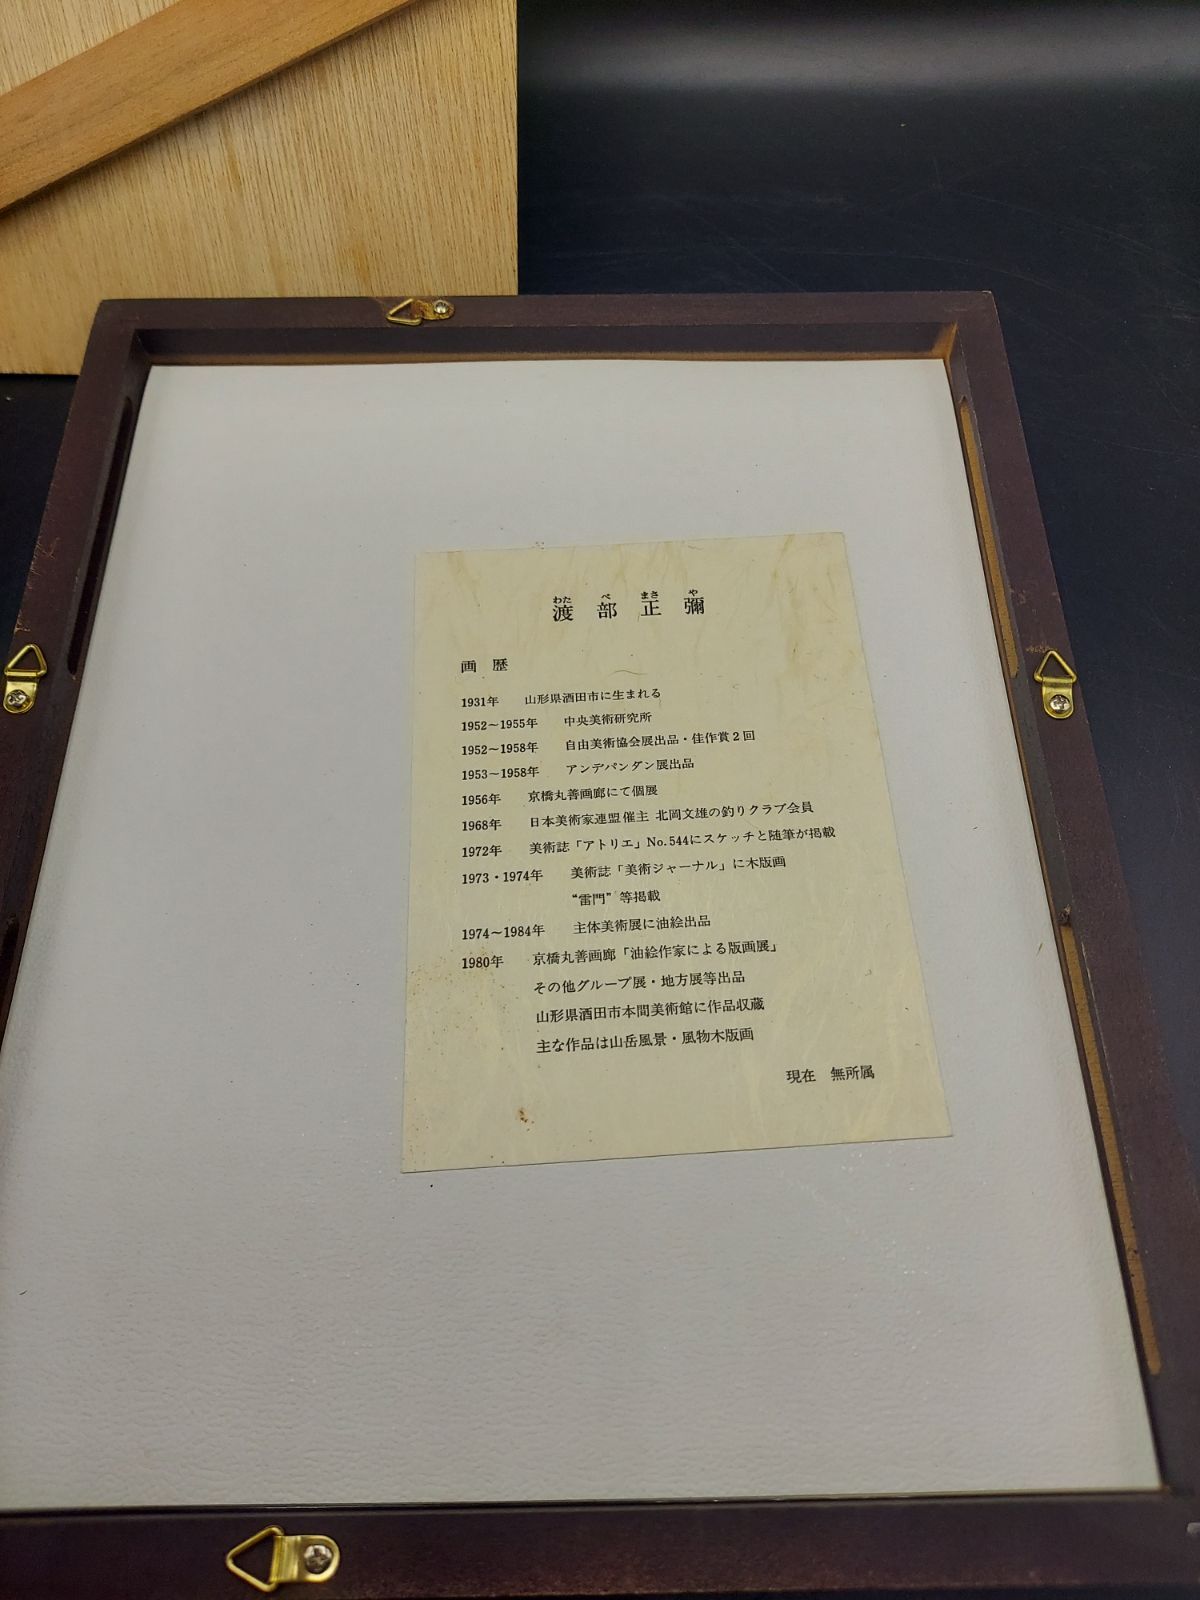 わた べ まさ や
渡部正彌
画歴
1931年 山形県酒田市に生まれる
1952～1955年 中央美術研究所
1952～1958年 自由美術協会展出品・佳作賞2回
1953～1958年 アンデパンダン展出品
1956年 京橋丸善画廊にて個展
1968年 日本美術家連盟催主 北岡文雄の釣りクラブ会員
1972年 美術誌「アトリエ」No.544にスケッチと随筆が掲載
1973・1974年 美術誌「美術ジャーナル」に木版画
“雷門”等掲載
1974～1984年 主体美術展に油絵出品
1980年 京橋丸善画廊「油絵作家による版画展」
その他グループ展・地方展等出品
山形県酒田市本間美術館に作品収蔵
主な作品は山岳風景・風物木版画
現在 無所属